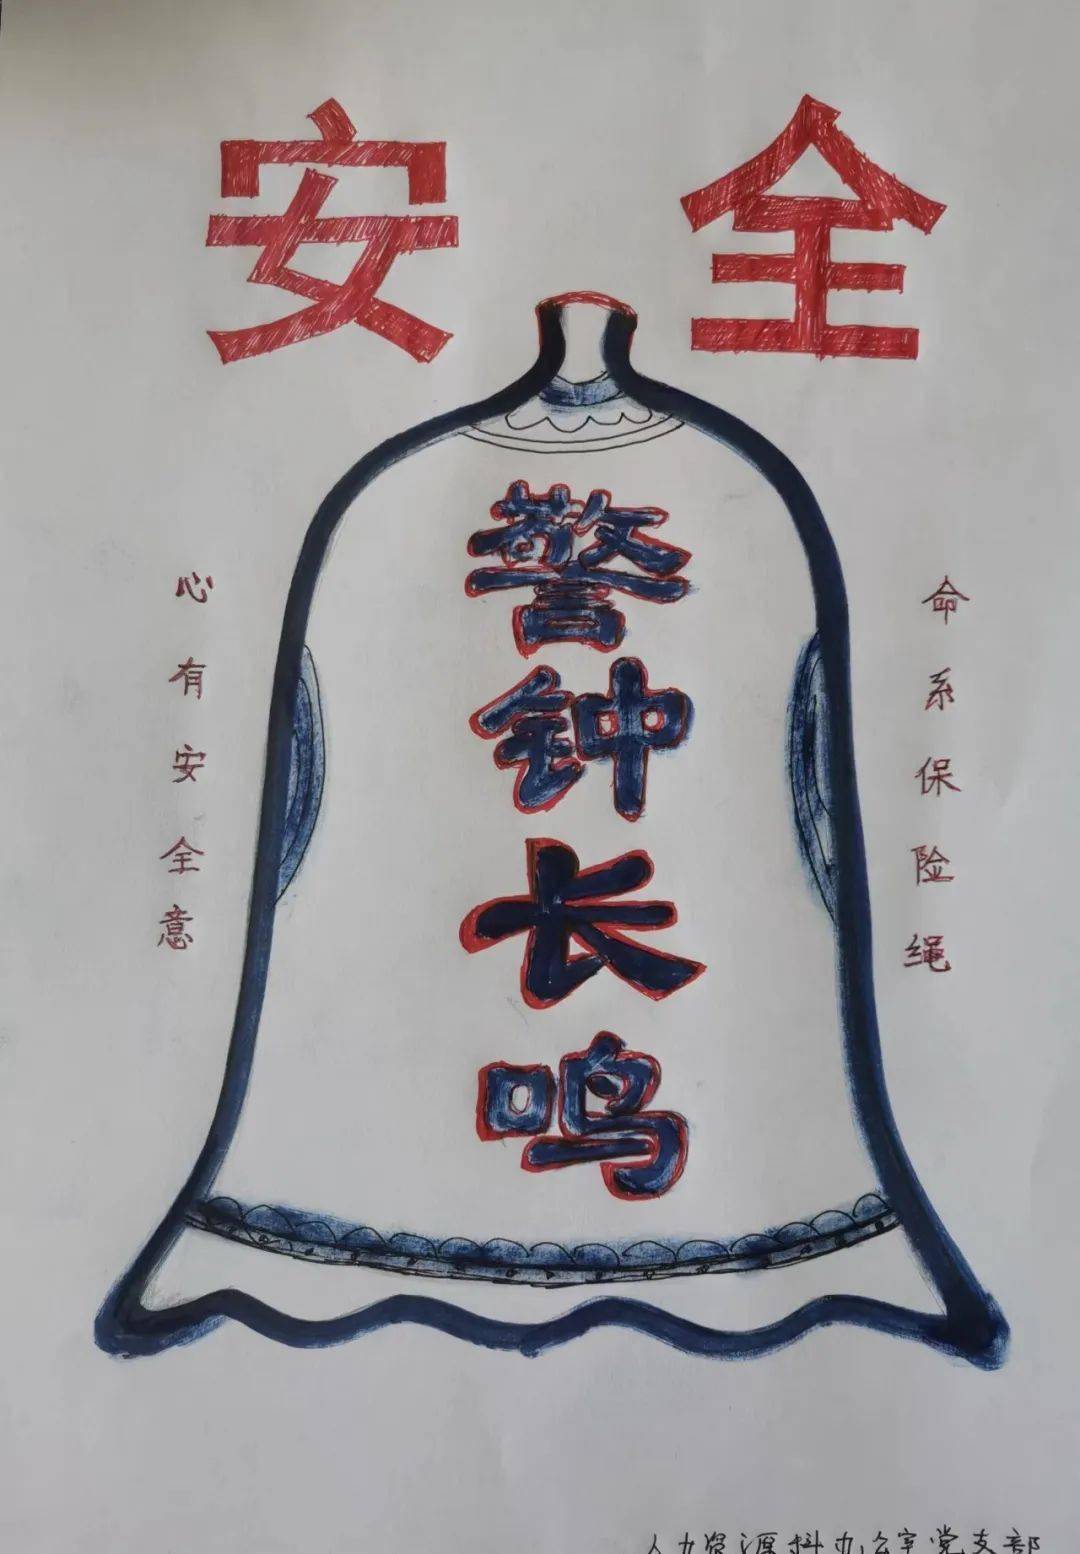 安 全
警钟长鸣
心有安全意
命系保险绳
人力资源科办公室党支部